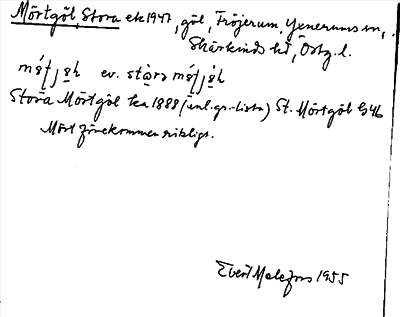 Mörtgöl, Stora ek 1947, göl, Fröjerum, Yxnerums sn,
Skärkinds hd, Östg. l.
ev.
Stora Mörtgöl ka 1888 (enl. gr.-lista) St. Mörtgöl G46
Mört förekommer rikligt.
Evert Melefors 1955